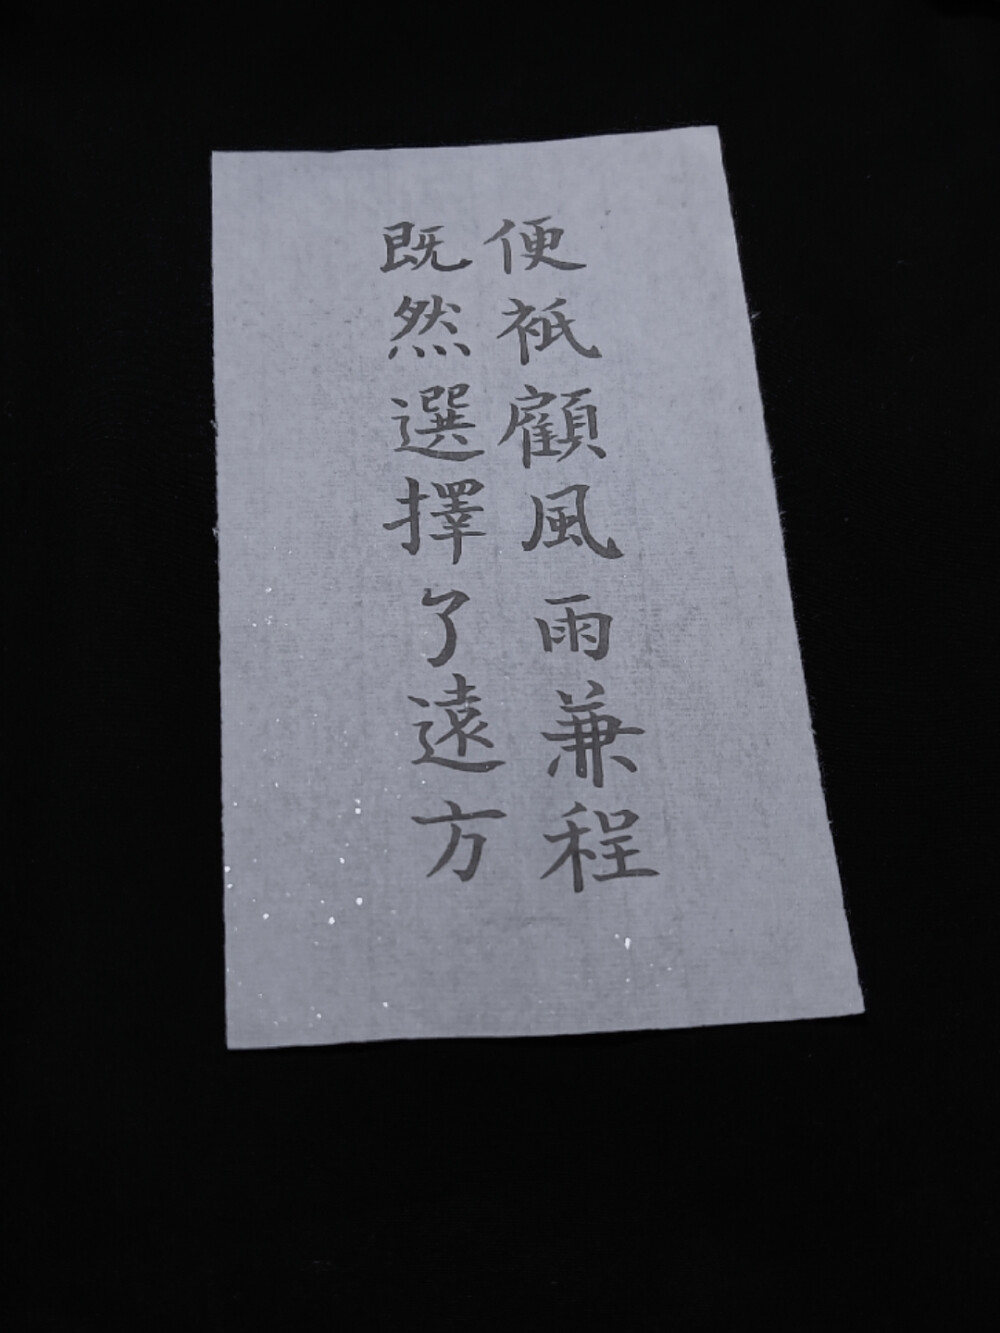 既然選擇了遠方
便衹顧風雨兼程